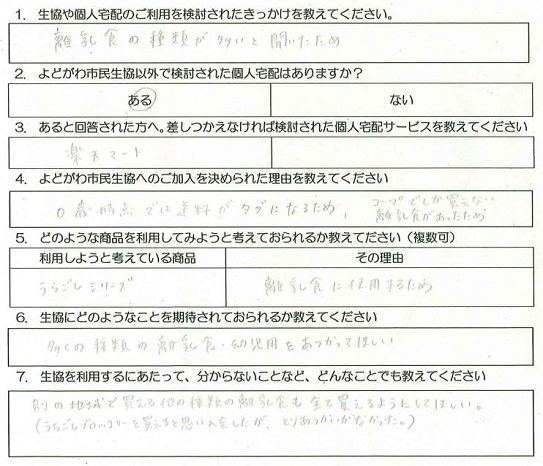 1. 生協や個人宅配のご利用を検討されたきっかけを教えてください。
離乳食の種類が多いと聞いたため
2. よどがわ市民生協以外で検討された個人宅配はありますか?
ある ない
3. あると回答された方へ。差しつかえなければ検討された個人宅配サービスを教えてください
楽天マート
4. よどがわ市民生協へのご加入を決められた理由を教えてください
0歳時点では送料がタダになるため, コープでしか買えない
離乳食があったため
5. どのような商品を利用してみようと考えておられるか教えてださい(複数可)
利用しようと考えている商品 その理由
うらごしシリーズ 離乳食に使用するため
6. 生協にどのようなことを期待されておられるか教えてください
多くの種類の離乳食・幼児用をあつかってほしい
7. 生協を利用するにあたって、分からないことなど、どんなことでも教えてください
別の地域で買える他の種類の離乳食も全て買えるようにしてほしい。
(うらごしブロッコリーを買えると思い入会したが、とりあつかいがなかった。)